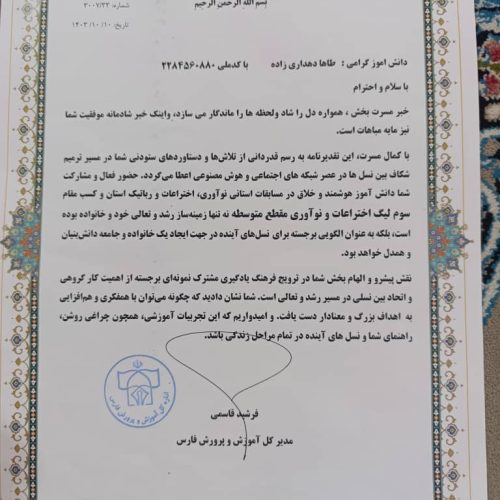 بسم الله الرحمن الرحیم
شماره: ۳۰۰۷/۳۲
تاریخ: ۱۴۰۳/۱۰/۱۰
دانش آموز گرامی : طاها دهداری زاده با کدملی ۲۲۸۴۵۶۰۸۸۰
با سلام و احترام
خبر مسرت بخش ، همواره دل را شاد ولحظه ها را ماندگار می سازد، واینک خبر شادمانه موفقیت شما
نیز مایه مباهات است.
با کمال مسرت، این تقدیرنامه به رسم قدردانی از تلاش‌ها و دستاوردهای ستودنی شما در مسیر ترمیم
شکاف بین نسل ها در عصر شبکه های اجتماعی و هوش مصنوعی اعطا می‌گردد. حضور فعال و مشارکت
شما دانش آموز هوشمند و خلاق در مسابقات استانی نوآوری، اختراعات و رباتیک استان و کسب مقام
سوم لیگ اختراعات و نوآوری مقطع متوسطه نه تنها زمینه‌ساز رشد و تعالی خود و خانواده بوده
است، بلکه به عنوان الگویی برجسته برای نسل‌های آینده در جهت ایجاد یک خانواده و جامعه دانش‌بنیان
و همدل خواهد بود.
نقش پیشرو و الهام بخش شما در ترویج فرهنگ یادگیری مشترک نمونه‌ای برجسته از اهمیت کار گروهی
و اتحاد بین نسلی در مسیر رشد و تعالی است. شما نشان دادید که چگونه می‌توان با همفکری و هم‌افزایی
به اهداف بزرگ و معنادار دست یافت. و امیدواریم که این تجربیات آموزشی، همچون چراغی روشن،
راهنمای شما و نسل های آینده در تمام مراحل زندگی باشد.
فرشید قاسمی
مدیر کل آموزش و پرورش فارس
اداره کل آموزش و پرورش فارس